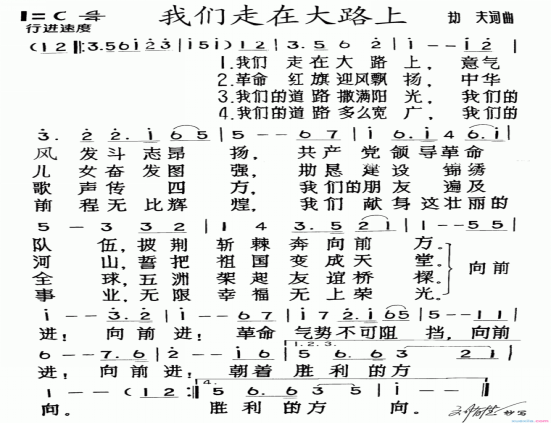 1=C 2/4 我们走在大路上 劫 夫词曲
行进速度
(12 | 3.56i2i | i5i) | 12 | 3. 5 | 6 3 5 2 | i--i2 |
1.我们 走 在 大 路 上, 意气
2.革命 红 旗 迎风飘 扬, 中华
3.我们的道 路 撒满阳 光, 我们的
4.我们的道 路 多么宽 广, 我们的
3. 2 2. i 6 5 | 5--6 7 | i 6. i 4 6. i |
风 发斗 志昂 扬, 共产 党领导革命
儿 女奋 发图 强, 勋恳 建设 锦绣
歌 声传 四 方, 我们 的朋友 遍及
前 程无 比辉 煌, 我们 献身这壮丽的
5 - 3 3 2 | 1 4 3. 5 2 1 | 1--5 5 |
队 伍, 披荆 斩 棘 奔向前 方。
河 山, 誓把 祖 国 变成天 堂。
全 球, 五洲 架 起 友谊桥 樑。
事 业, 无限 幸 福 无上荣 光。
向前
i--3. 2 | i--6 7 | i 7 2. i 6 5 | 5--1 1 |
进! 向前 进! 革命 气势不可阻 挡, 向前
6--7. 6 | 2--i 6 | 5 6. 6 3 2 1 |
1. 2. 3.
进! 向前 进! 朝着 胜利 的方
1--(12 :| 5 6. 6 3 5 | i-- |
4.
向。 胜利的方 向。
抄写